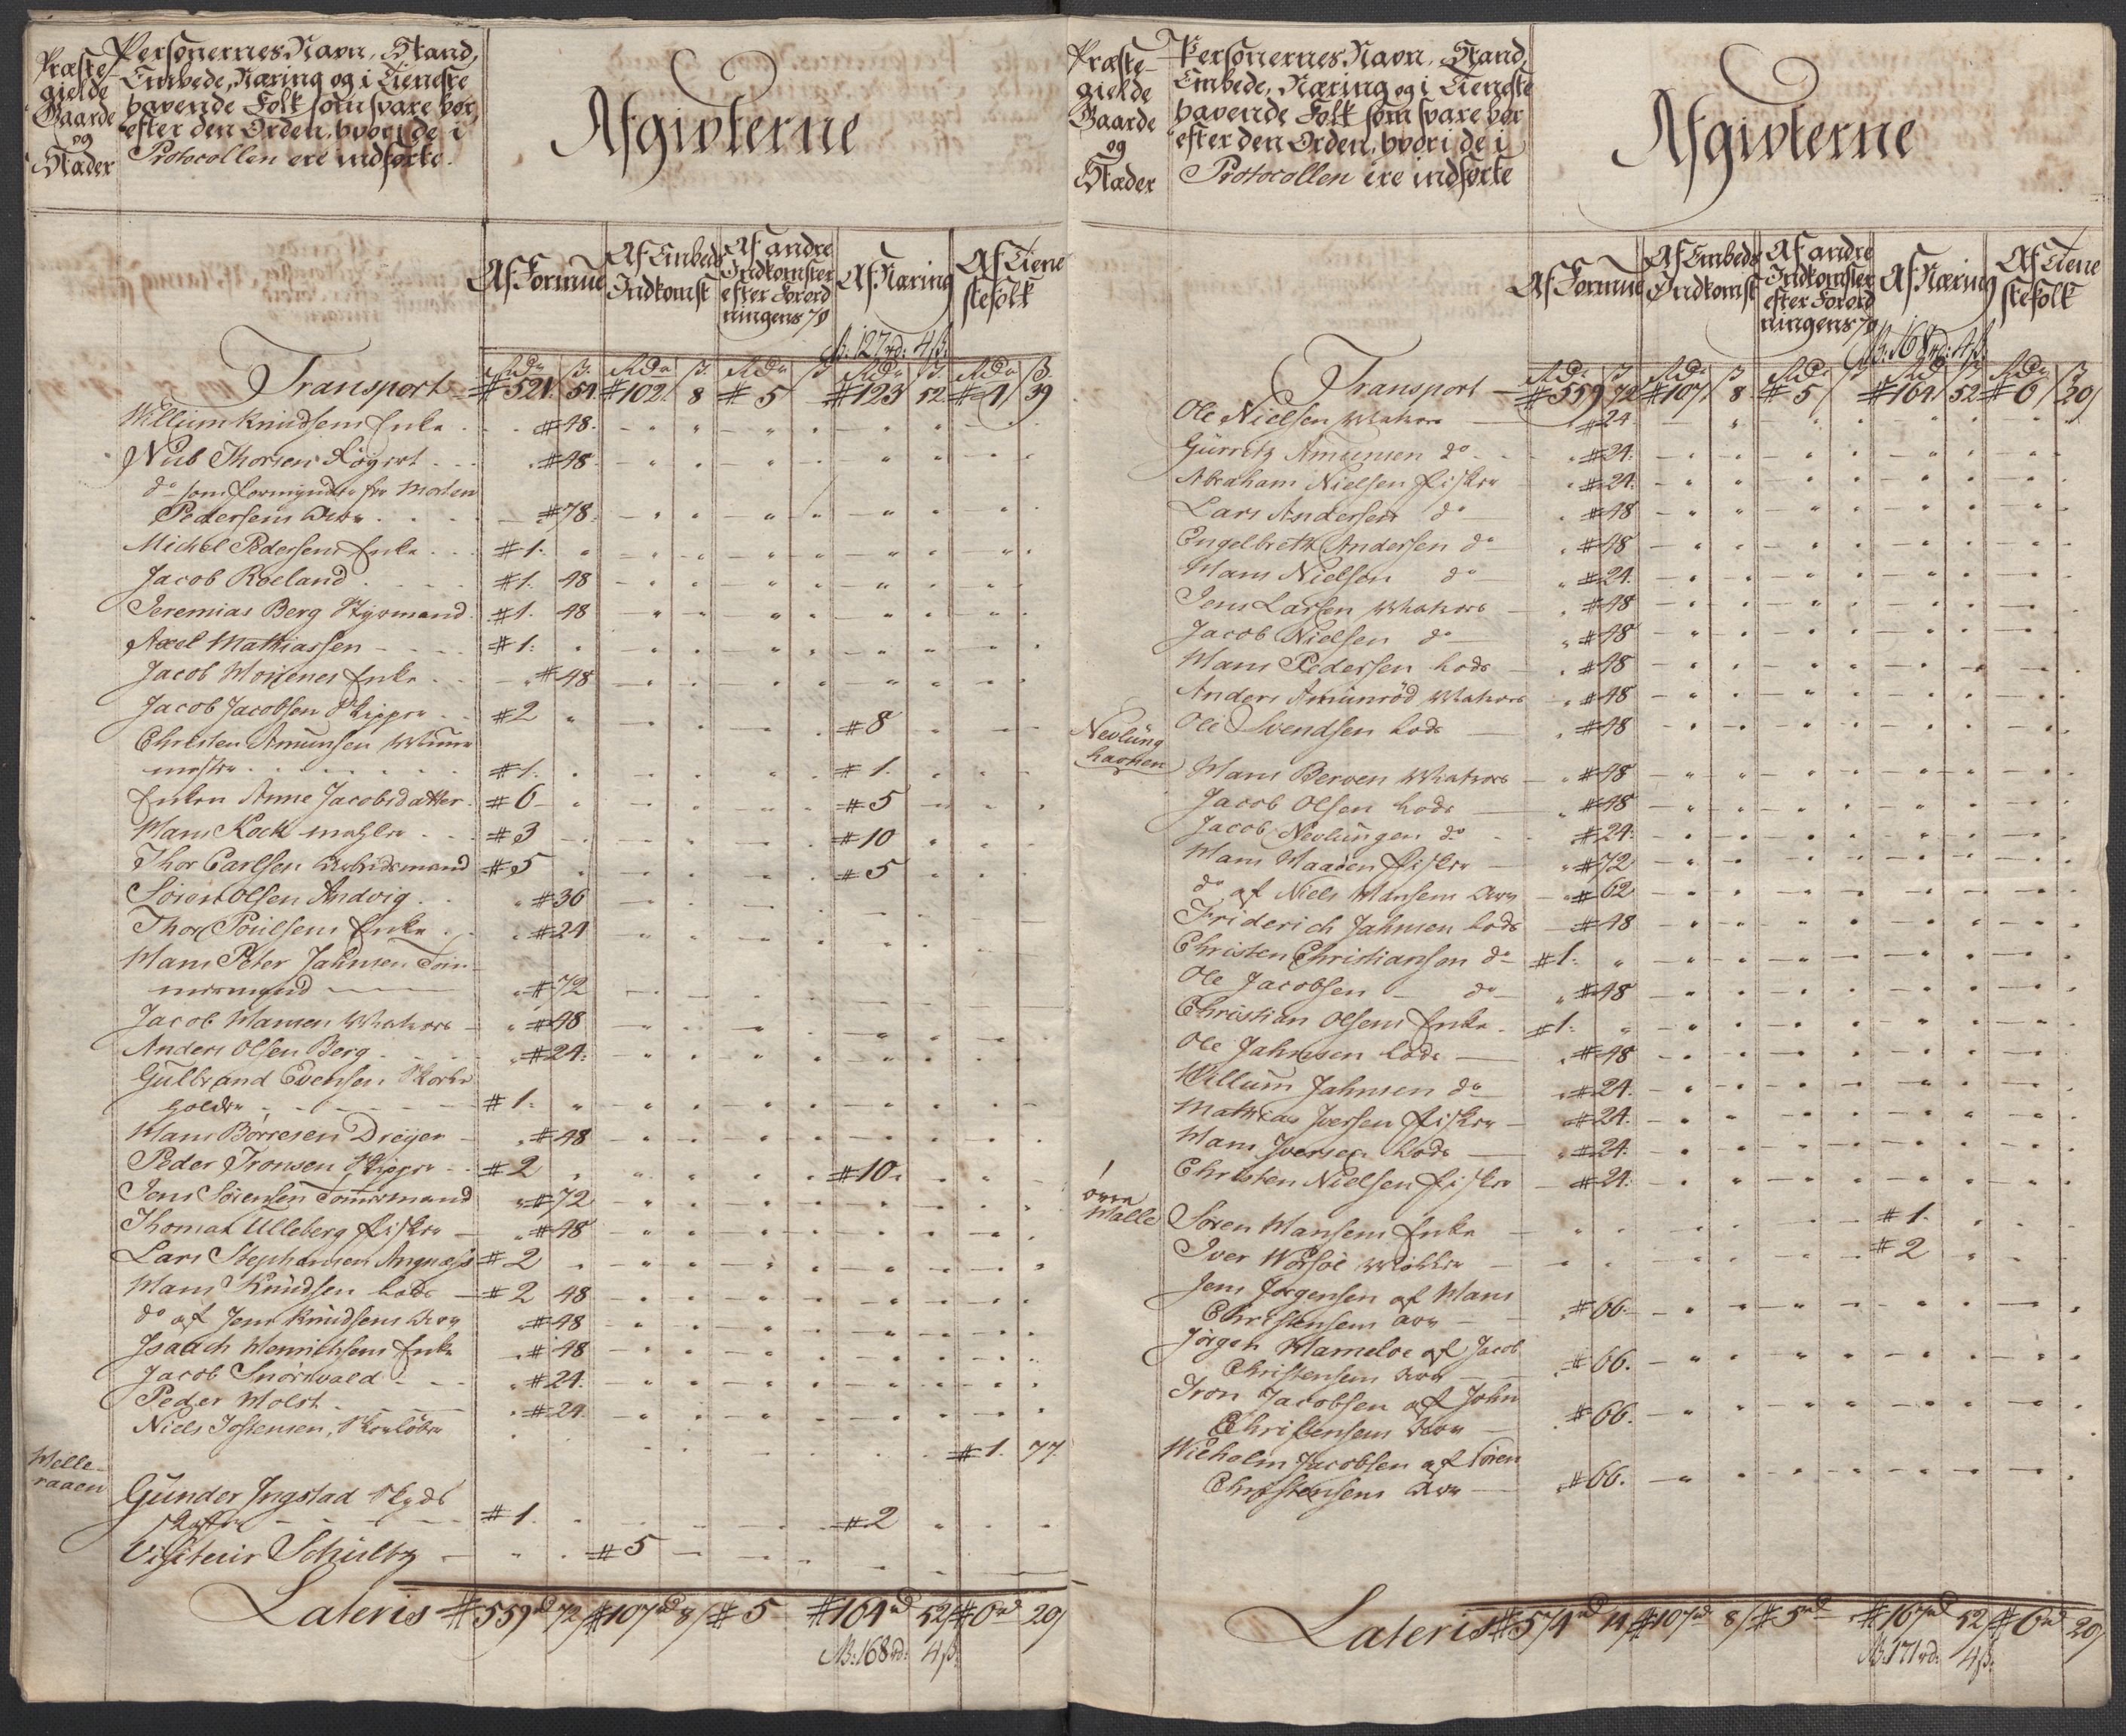 Præste-
gielde
Gaarde
og
Stæder
Personernes Navn, Stand,
Embede, Næring og i Tieneste
havende Folk som svare her,
efter den Orden, hvori de i
Protocollen ere indførte.
Afgivterne
Af Formue
Af Embeds
Indkomst
Af andre
Indkomster
efter Forord
ningens 7 §
Af Næring
Af Tiene
stefolk
N: 127 rd: 4 ß.
Rdr ß. Rdr ß. Rdr ß Rdr ß Rdr ß.
Transport # 521. 54 # 102. 8 # 5 # 123 52 # 4 39
Willum Knudsens Enke # 48.
Niels Thorsen Røgert # 48.
do som Formynder for Morten
Pedersens Arv # 78.
Michel Pedersens Enke # 1.
Jacob Roeland # 1. 48
Jeremias Berg Styrmand # 1. 48
Axel Mathiassen # 1.
Jacob Mortenes Enke # 48
Jacob Jacobsen Skipper # 2 # 8
Christen Amunsen
mester # 1. # 1.
Enken Anne Jacobsdatter # 6 # 5
Hans Kock mahler # 3 # 10
Thor Carlsen Arbeidsmand # 5 # 5
Søren Olsen Andvig # 36
Thor Poulsens Enke # 24
Hans Peter Jahnsen Tøm-
mermand # 72
Jacob Hansen Matros # 48
Anders Olsen Berg # 24.
Gulbrand Evensen Skole
holder # 1.
Hans Börresen Dreyer # 48
Peder Tronsen Skipper # 2 # 10
Jens Sørensen Tømermand # 72
Thomas Ulleberg fisker # 48
Lars Stephansen Angnæs # 2
Hans Knudsen Lods # 2 48
do af Jens Knudsens Arv # 48
Isaach Henrichsens Enke # 48
Jacob Snørsvald # 24.
Peder Holst # 24.
Niels Jostensen, # 1. 77.
Helle-
raaen
Gunder Ingstad Skyds
skaffer # 1. # 2
Visiteur Schultz # 5
Lateris # 559 rd 72 # 107 rd 8 # 5 # 164 rd 52 # 6 rd 20
N: 168 rd: 4 ß.
Præste-
gielde
Gaarde
og
Stæder
Personernes Navn, Stand,
Embede, Næring og i Tieneste
havende Folk som svare her
efter den Orden, hvori de i
Protocollen ere indførte
Afgivterne
Af Formue
Af Embeds
Indkomst
Af andre
Indkomster
efter Forord
ningens 7 §
Af Næring
Af Tiene
stefolk
N: 168 rd: 4 ß.
Rdr ß Rdr ß Rdr ß Rd ß Rdr ß
Transport # 559 72 # 107 8 # 5 # 164 52 # 6 20
Ole Nielsen Matros # 24.
Gurretz Amunsen do # 24.
Abraham Nielsen fisker # 24.
Lars Andersen do # 48
Engelbreth Andersen do # 48
Hans Nielsen do # 24.
Jens Larsen Matros # 48
Jacob Nielsen do # 48
Hans Pedersen Lods # 48
Anders Amunröd Matros # 48
Nevlüng
havnen
Ole Svendsen Lods # 48
Hans Berven Matros # 48
Jacob Olsen Lods # 48
Jacob Nevlungen do # 24.
Hans Haaden fisker # 72
do af Niels Hansens Arv # 62
Friderich Jahnsen Lods # 48
Christen Christiansen do # 1.
Ole Jacobsen do # 48
Christian Olsens Enke # 1.
Ole Jahnsen Lods # 48
Willum Jahnsen do # 24.
Mathias Iversen fisker # 24.
Hans Iversen Lods # 24.
Christen Nielsen fisker # 24.
øvre
Halle
Søren Hansens Enke # 1.
Iver Worsøe Møller # 2
Jens Jørgensen af Hans
Christensens Arv # 66.
Jörgen Hameloe af Jacob
Christensens Arv # 66.
Tron Jacobsen af John
Christensens Arv # 66.
Wilholm Jacobsen af Søren
Christensens Arv # 66.
Lateris # 574 rd 14 # 107 rd 8 # 5 rd # 167 rd 52 # 6 rd 20
N: 171 rd: 4 ß.